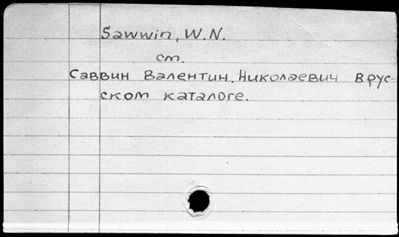 Sawwin, W.N.
см.
Саввин Валентин Николаевич в рус-
ском каталоге.